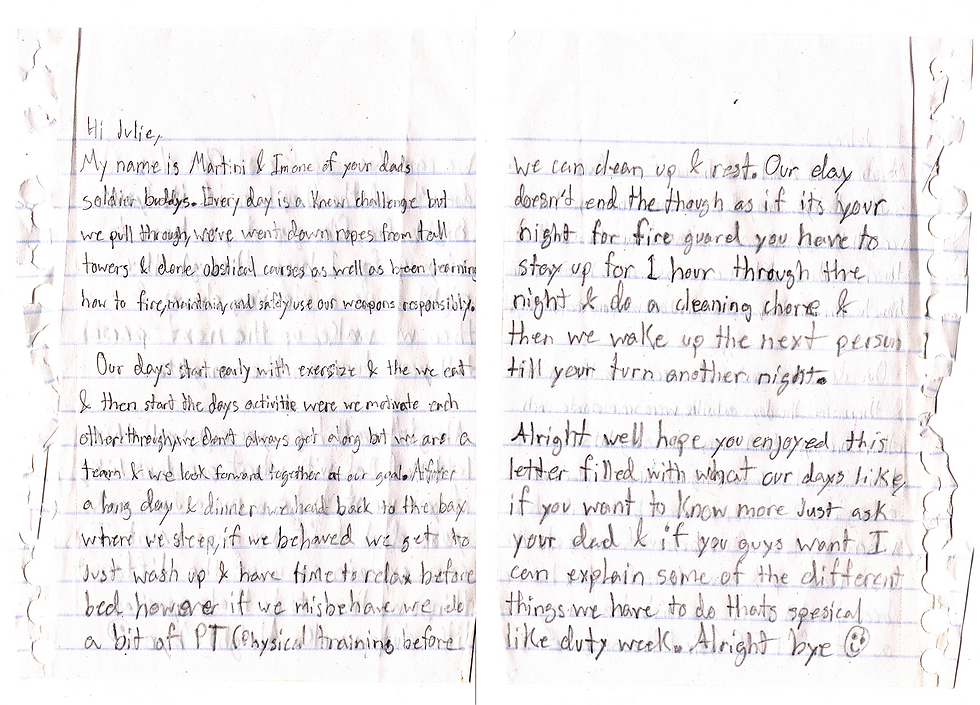 Hi Julie,
My name is Martini & Im one of your dads
soldier buddys. Every day is a Know challenge but
we pull through, we've went down ropes from tall
towers & done obstical courses as well as been learning
how to fire, maintain, and safdy use our weapons responsibility.
Our days start early with exersize & the we eat
& then start the days activitie were we motivate each
other through, we don't always get along but we are a
team & we look forward together at our goal. After
a long day & dinner we head back to the bay
where we sleep, if we behaved we get to
Just wash up & have time to relax before
bed however if we misbehave we do
a bit of PT (Physical) training before
we can clean up & rest. Our day
doesn't end the though as if its your
night for fire guard you have to
stay up for 1 hour through the
night & do a cleaning chore &
then we wake up the next person
till your turn another night.
Alright well hope you enjoyed this
letter filled with what our days like,
if you want to Know more Just ask
your dad & if you guys want I
can explain some of the different
things we have to do thats spesical
like duty week. Alright bye